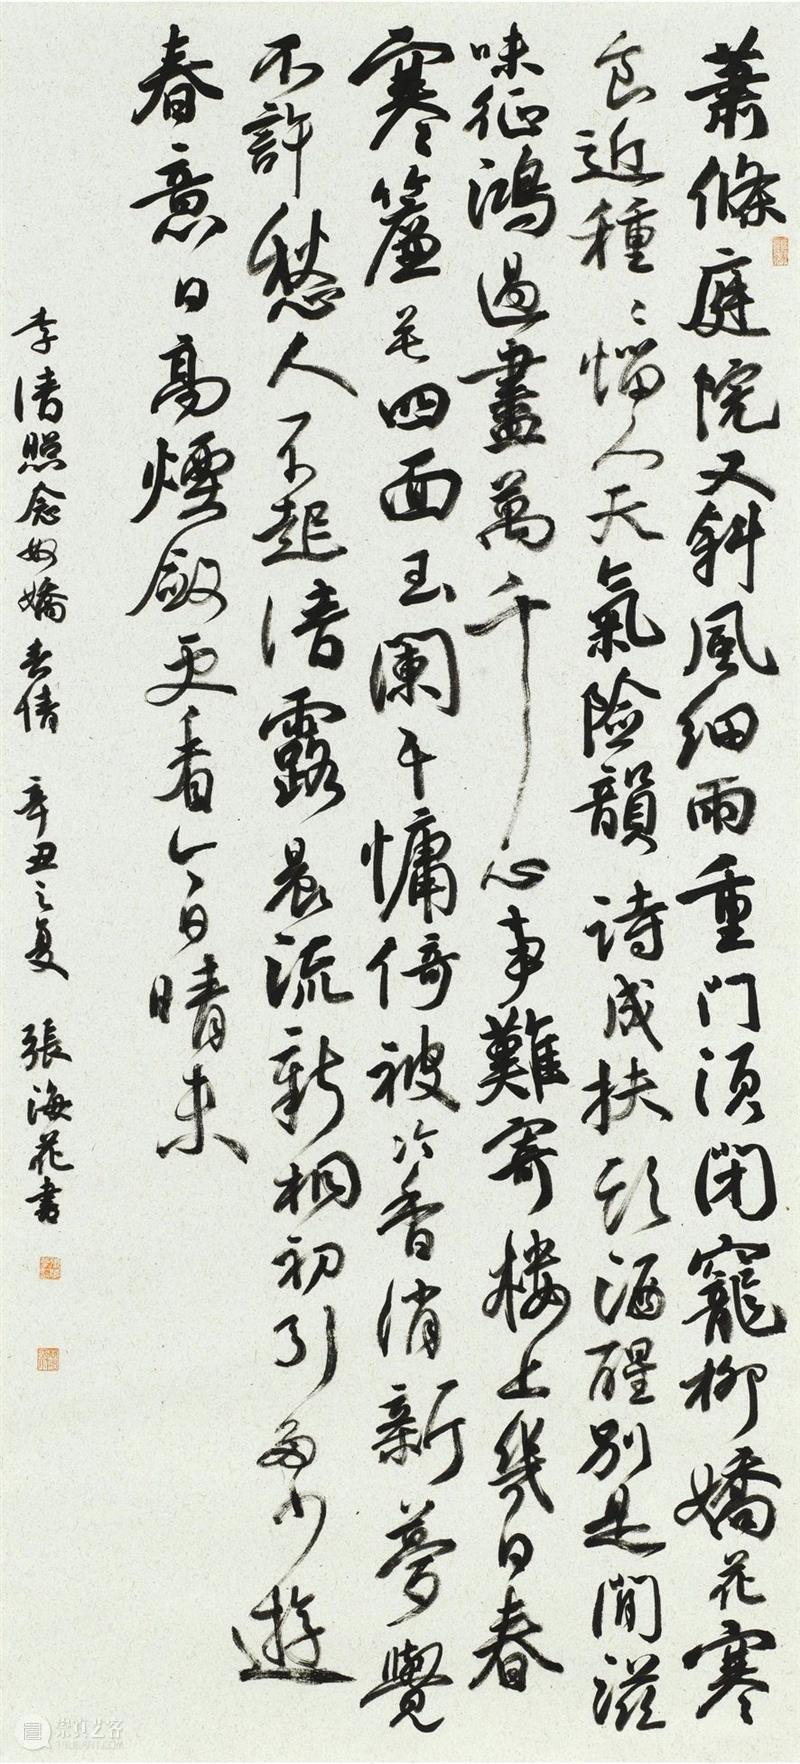 蕭條庭院又斜風細雨重門須閉寵柳嬌花寒
食近種〻惱人天氣險韻詩成扶頭酒醒別是閒滋
味征鴻過盡萬千心事難寄樓上幾日春
寒簾垂四面玉闌干慵倚被冷香消新夢覺
不許愁人不起清露晨流新桐初引多少遊
春意日高煙斂更看今日晴未
李清照念奴嬌春情 辛丑之夏 張海花書
崇真艺客